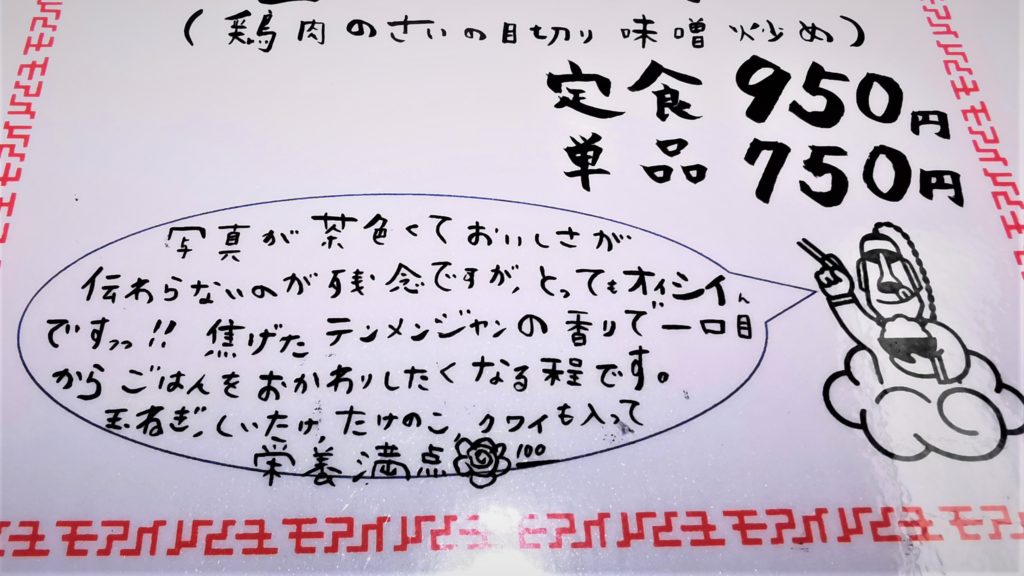 (鶏肉のさいの目切り味噌炒め)
定食 950円
単品 750円
写真が茶色くておいしさが
伝わらないのが残念ですが、とってもオイシイん
ですっっ!! 焦げたテンメンジャンの香りで一口目
からごはんをおかわりしたくなる程です。
玉ねぎ、しいたけ、たけのこ、クワイも入って
栄養満点 100